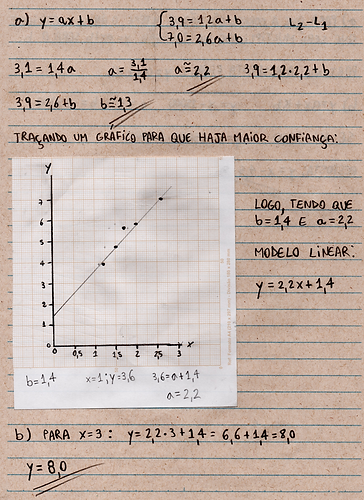 a) y=ax+b { 3,9=1,2a+b L2-L1
7,0=2,6a+b
3,1=1,4a a=3,1/1,4 a≅2,2 3,9=1,2·2,2+b
3,9=2,6+b b≅1,3
TRAÇANDO UM GRÁFICO PARA QUE HAJA MAIOR CONFIANÇA:
Y
7
6
5
4
3
2
1
0
0 0,5 1 1,5 2 2,5 3 X
b=1,4 x=1; y=3,6 3,6=a+1,4
a=2,2
LOGO, TENDO QUE
b=1,4 E a=2,2
MODELO LINEAR:
y=2,2x+1,4
b) PARA x=3: y=2,2·3+1,4=6,6+1,4=8,0
y=8,0